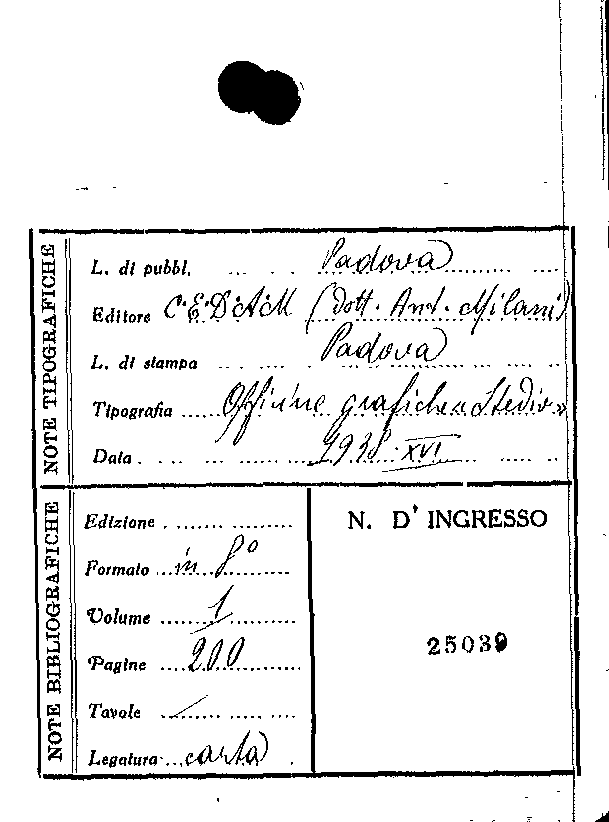 NOTE TIPOGRAFICHE
L. di pubbl. Padova
Editore C.E.D.A.M. (dott. Ant. Milani)
L. di stampa Padova
Tipografia Officine grafiche «Stediv»
Data 1938 XVI
NOTE BIBLIOGRAFICHE
Edizione
Formato in 8°
Volume 1
Pagine 200
Tavole /
Legatura carta
N. D' INGRESSO
25039